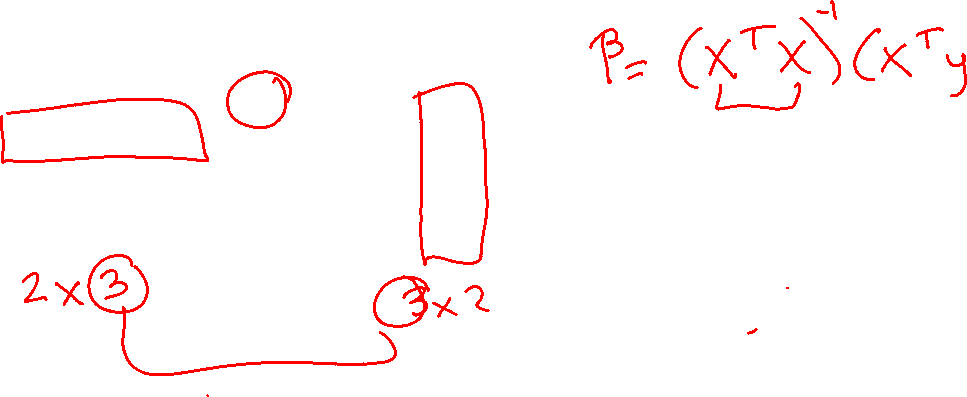 β = (XᵀX)⁻¹(Xᵀy
2 x 3 3 x 2